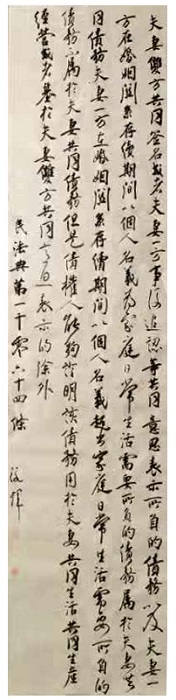 夫妻雙方共同簽名或者夫妻一方事後追認等共同意思表示所負的債務以及夫妻一
方在婚姻關系存續期間以個人名義為家庭日常生活需要所負的債務屬於夫妻共
同債務夫妻一方在婚姻關系存續期間以個人名義超出家庭日常生活需要所負的
債務不屬於夫妻共同債務但是債權人能夠證明該債務用於夫妻共同生活共同生產
經營或者基於夫妻雙方共同意思表示的除外
民法典第一千零六十四條